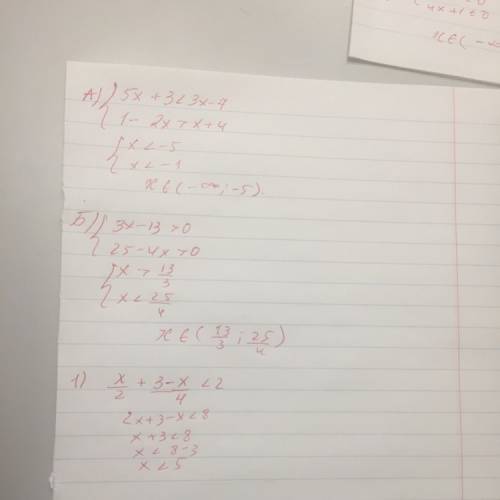 4x+1≤0
x∈(-∞
А) { 5x + 3 < 3x - 7
1 - 2x > x + 4
{ x < -5
x < -1
x ∈ (-∞; -5)
Б) { 3x - 13 > 0
25 - 4x > 0
{ x > 13/3
x < 25/4
x ∈ (13/3; 25/4)
1) x/2 + 3-x/4 < 2
2x + 3 - x < 8
x + 3 < 8
x < 8 - 3
x < 5